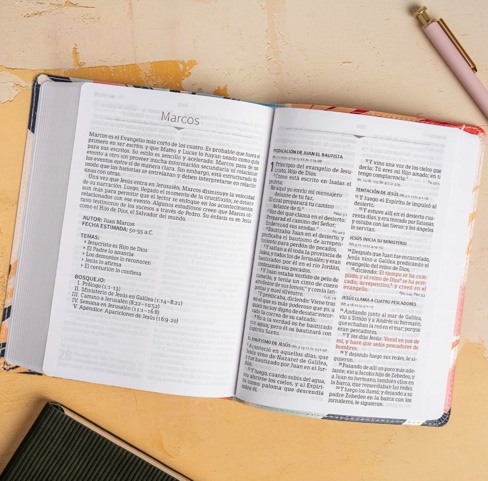 Marcos
Marcos es el Evangelio más corto de los cuatro. Es probable que fuera el
primero en ser escrito, y que Mateo y Lucas lo hayan usado como guía
para sus escritos. Su estilo es sencillo y acelerado. Marcos pasa de un
evento a otro sin proveer mucha información secundaria ni relacionar
los eventos entre sí de manera clara. Sin embargo, estudiando el
modo que las historias se entrelazan y deben interpretarse en relación
unas con otras.
Una vez que Jesús entra en Jerusalén, Marcos disminuye la velocidad
de su narración. Luego, llegado el momento de la crucifixión, se detiene
aun más para permitir que el lector se enfoque en los acontecimientos
relacionados con ese evento. Algunos estudiosos creen que Marcos ob-
tuvo testimonio de los sucesos a través de Pedro. Su énfasis es en Jesús
como el Hijo de Dios, el Salvador del mundo.
AUTOR: Juan Marcos
FECHA ESTIMADA: 50-55 a.C.
TEMAS:
Jesucristo es Hijo de Dios
El Padre lo anuncia
Los demonios lo reconocen
Jesús lo afirma
El centurión lo confiesa
BOSQUEJO:
I. Prólogo (1:1-13)
II. Ministerio de Jesús en Galilea (1:14-8:21)
III. Camino a Jerusalén (8:22-10:52)
IV. Semana en Jerusalén (11:1-16:8)
V. Apéndice: Apariciones de Jesús (16:9-20)
PREDICACIÓN DE JUAN EL BAUTISTA
Principio del evangelio de Jesu-
cristo, Hijo de Dios.
Como está escrito en Isaías el
profeta:
He aquí yo envío mi mensajero
delante de tu faz,
el cual preparará tu camino
delante de ti.
Voz del que clama en el desierto:
Preparad el camino del Señor;
Enderezad sus sendas.
Bautizaba Juan en el desierto, y
predicaba el bautismo de arrepenti-
miento para perdón de pecados.
Y salían a él toda la provincia de
Judea, y todos los de Jerusalén; y eran
bautizados por él en el río Jordán,
confesando sus pecados.
Y Juan estaba vestido de pelo de
camello, y tenía un cinto de cuero
alrededor de sus lomos; y comía lan-
gostas y miel silvestre.
Y predicaba, diciendo: Viene tras
mí el que es más poderoso que yo, a
quien no soy digno de desatar encor-
vado la correa de su calzado.
Yo a la verdad os he bautizado
con agua; pero él os bautizará con
Espíritu Santo.
EL BAUTISMO DE JESÚS
Aconteció en aquellos días, que
Jesús vino de Nazaret de Galilea,
y fue bautizado por Juan en el Jor-
dán.
Y luego, cuando subía del agua,
vio abrirse los cielos, y al Espíri-
tu como paloma que descendía
sobre él.
Y vino una voz de los cielos que
decía: Tú eres mi Hijo amado; en ti
tengo complacencia.
TENTACIÓN DE JESÚS
Y luego el Espíritu le impulsó al
desierto.
Y estuvo allí en el desierto cua-
renta días, y era tentado por Satanás,
y estaba con las fieras; y los ángeles
le servían.
JESÚS INICIA SU MINISTERIO
Después que Juan fue encarcelado,
Jesús vino a Galilea predicando el
evangelio del reino de Dios,
diciendo: El tiempo se ha cum-
plido, y el reino de Dios se ha acer-
cado; arrepentíos, y creed en el
evangelio.
JESÚS LLAMA A CUATRO PESCADORES
Andando junto al mar de Galilea,
vio a Simón y a Andrés su hermano,
que echaban la red en el mar; porque
eran pescadores.
Y les dijo Jesús: Venid en pos de
mí, y haré que seáis pescadores de
hombres.
Y dejando luego sus redes, le si-
guieron.
Pasando de allí un poco más ade-
lante, vio a Jacobo hijo de Zebedeo, y
a Juan su hermano, también ellos en
la barca, que remendaban las redes.
Y luego los llamó; y dejando a su
padre Zebedeo en la barca con los
jornaleros, le siguieron.